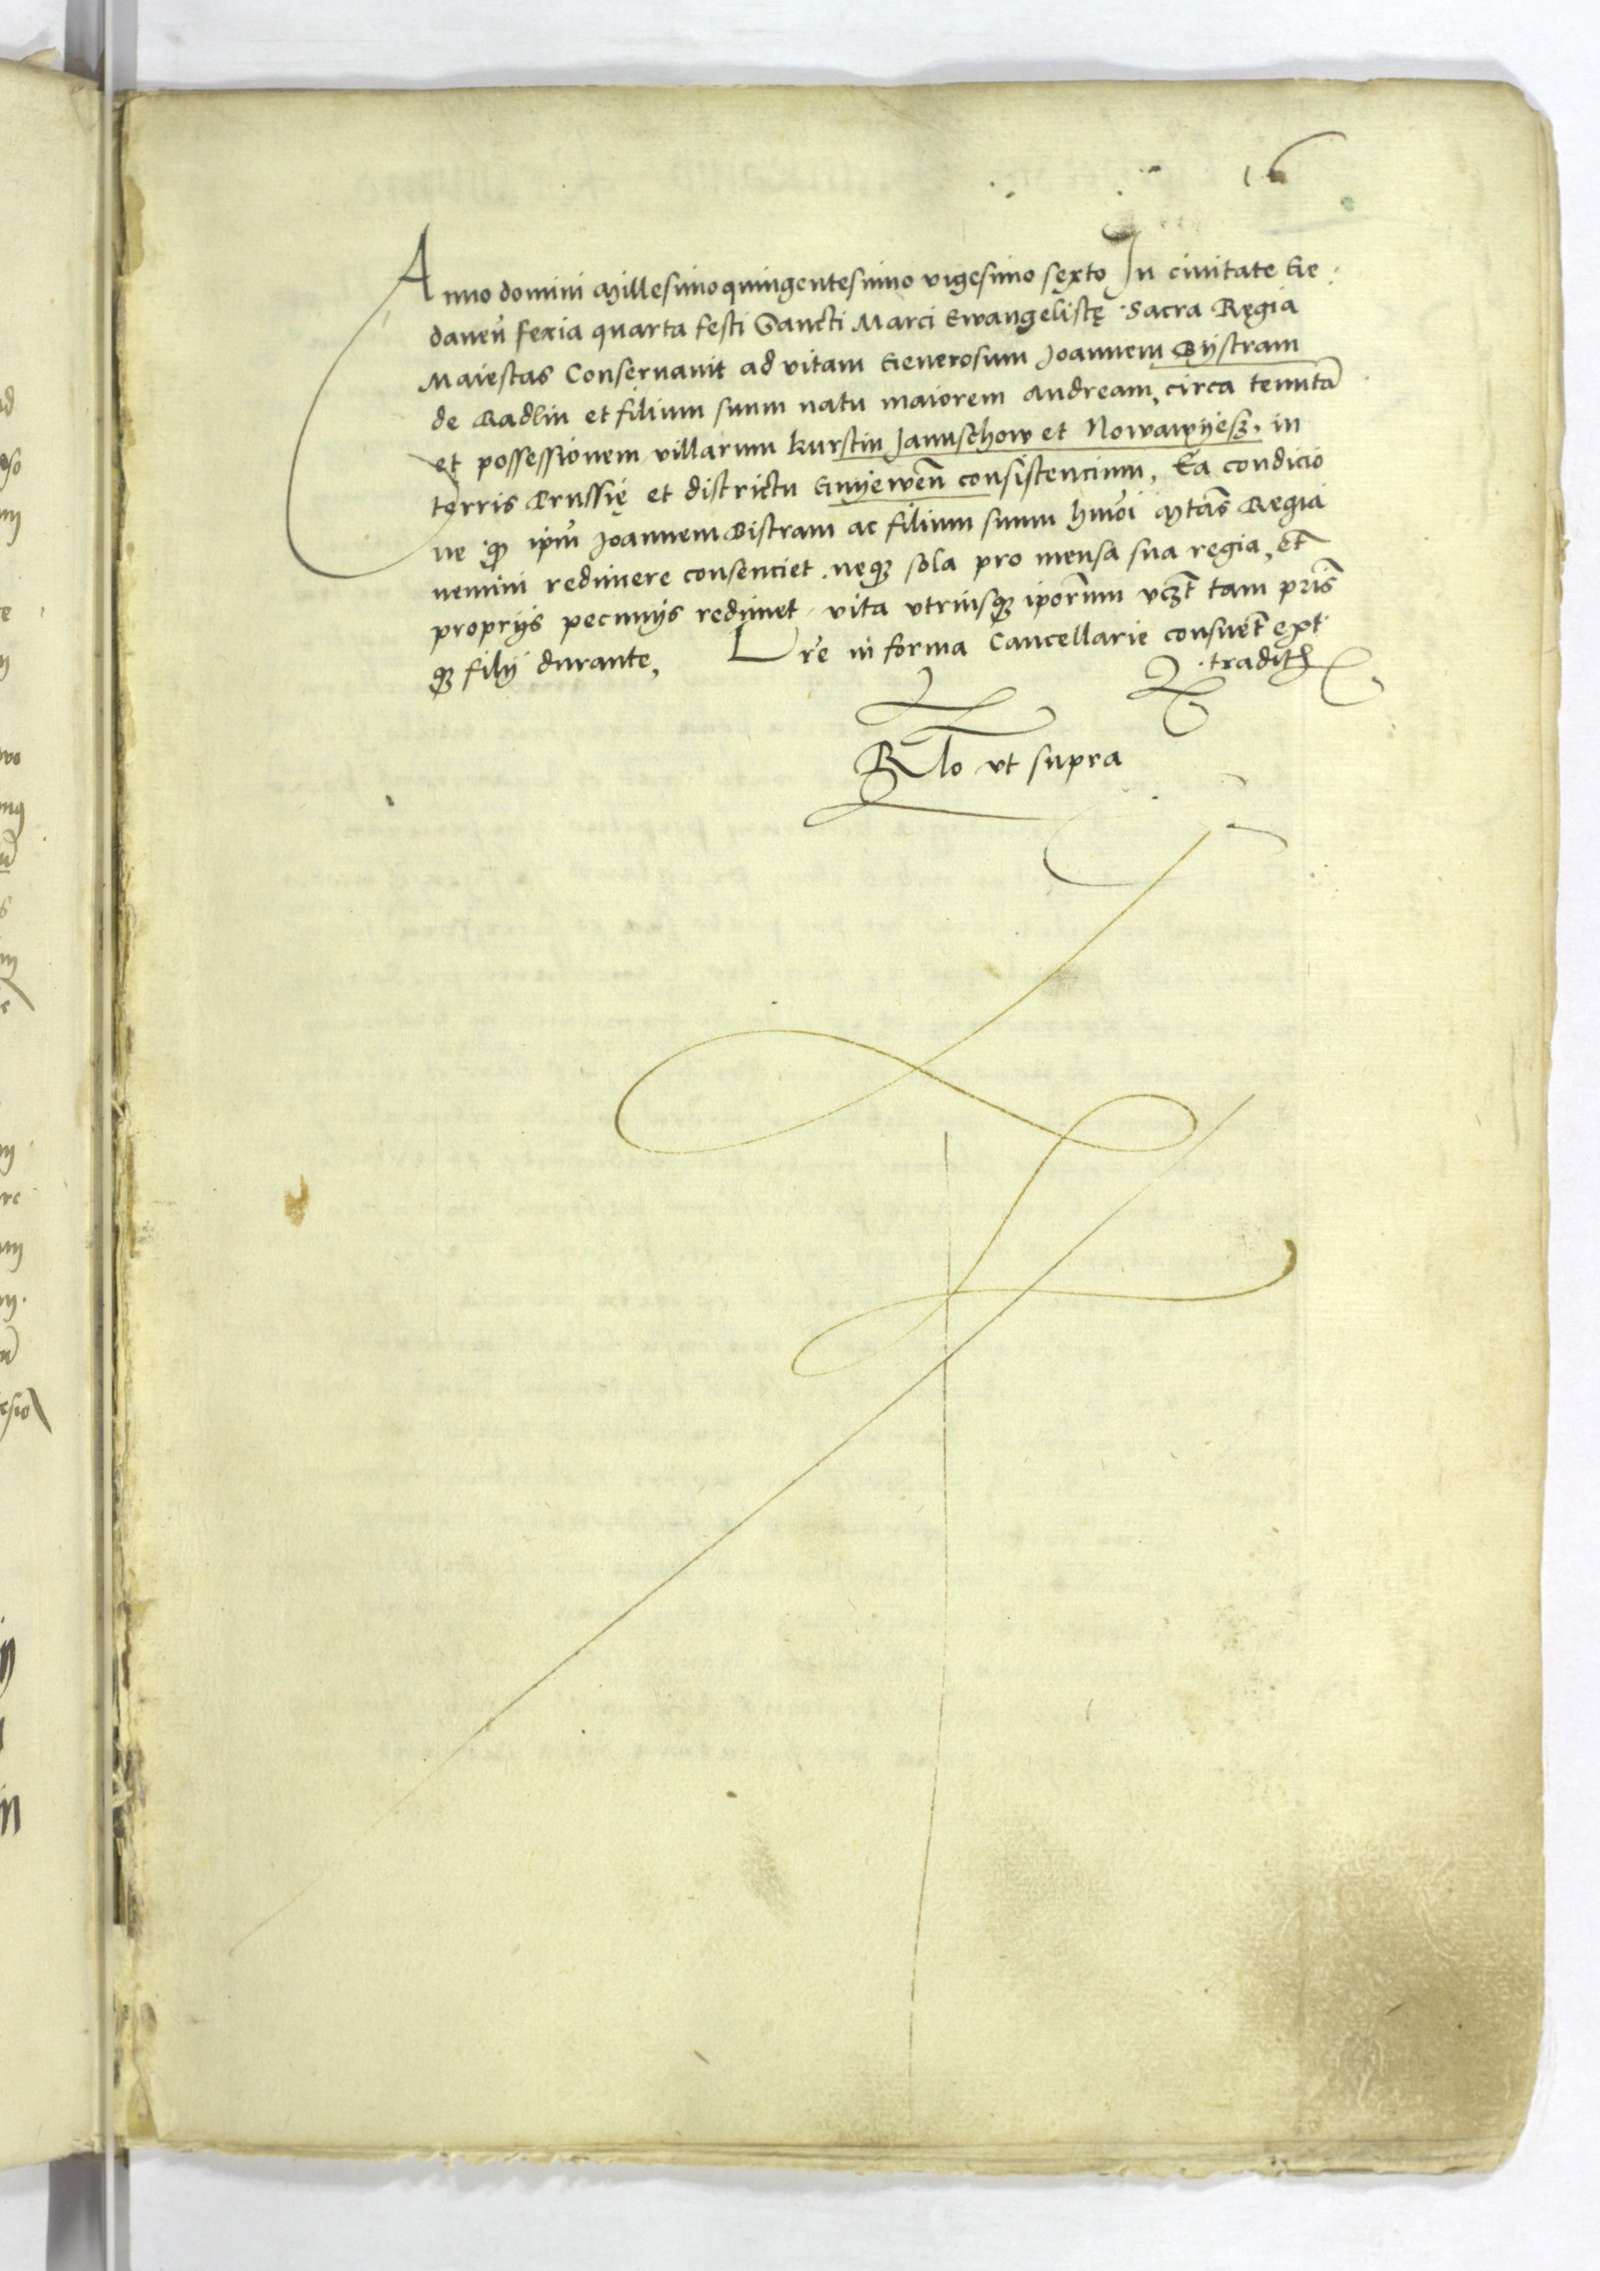 16
Anno domini Millesimoquingentesimo vigesimo sexto In ciuitate Ge
daneñ feria quarta festi Sancti Marci Ewangelistę Sacra Regia
Maiestas Conseruauit ad vitam Generosum Joannem Bystram
de Radlin et filium suum natu maiorem Andream, circa tenutã
et possessionem villarum kurstin Januschow et Nowawyesz, in
terris Prussię et districtu Gnyeweñ consistencium, Ea condicio
ne ꝙ ipm̃ Joannem Bistram ac filium suum hmõi Mtãs Regia
nemini redimere consenciet neqꝫ sola pro mensa sua regia, et
proprijs pecunijs redimet vita vtriusqꝫ ipõrum vcꝫt tam pr̃is
qꝫ filij durante, Lrẽ in forma Cancellarie consuet̃ ext
tradite
Rlo vt supra